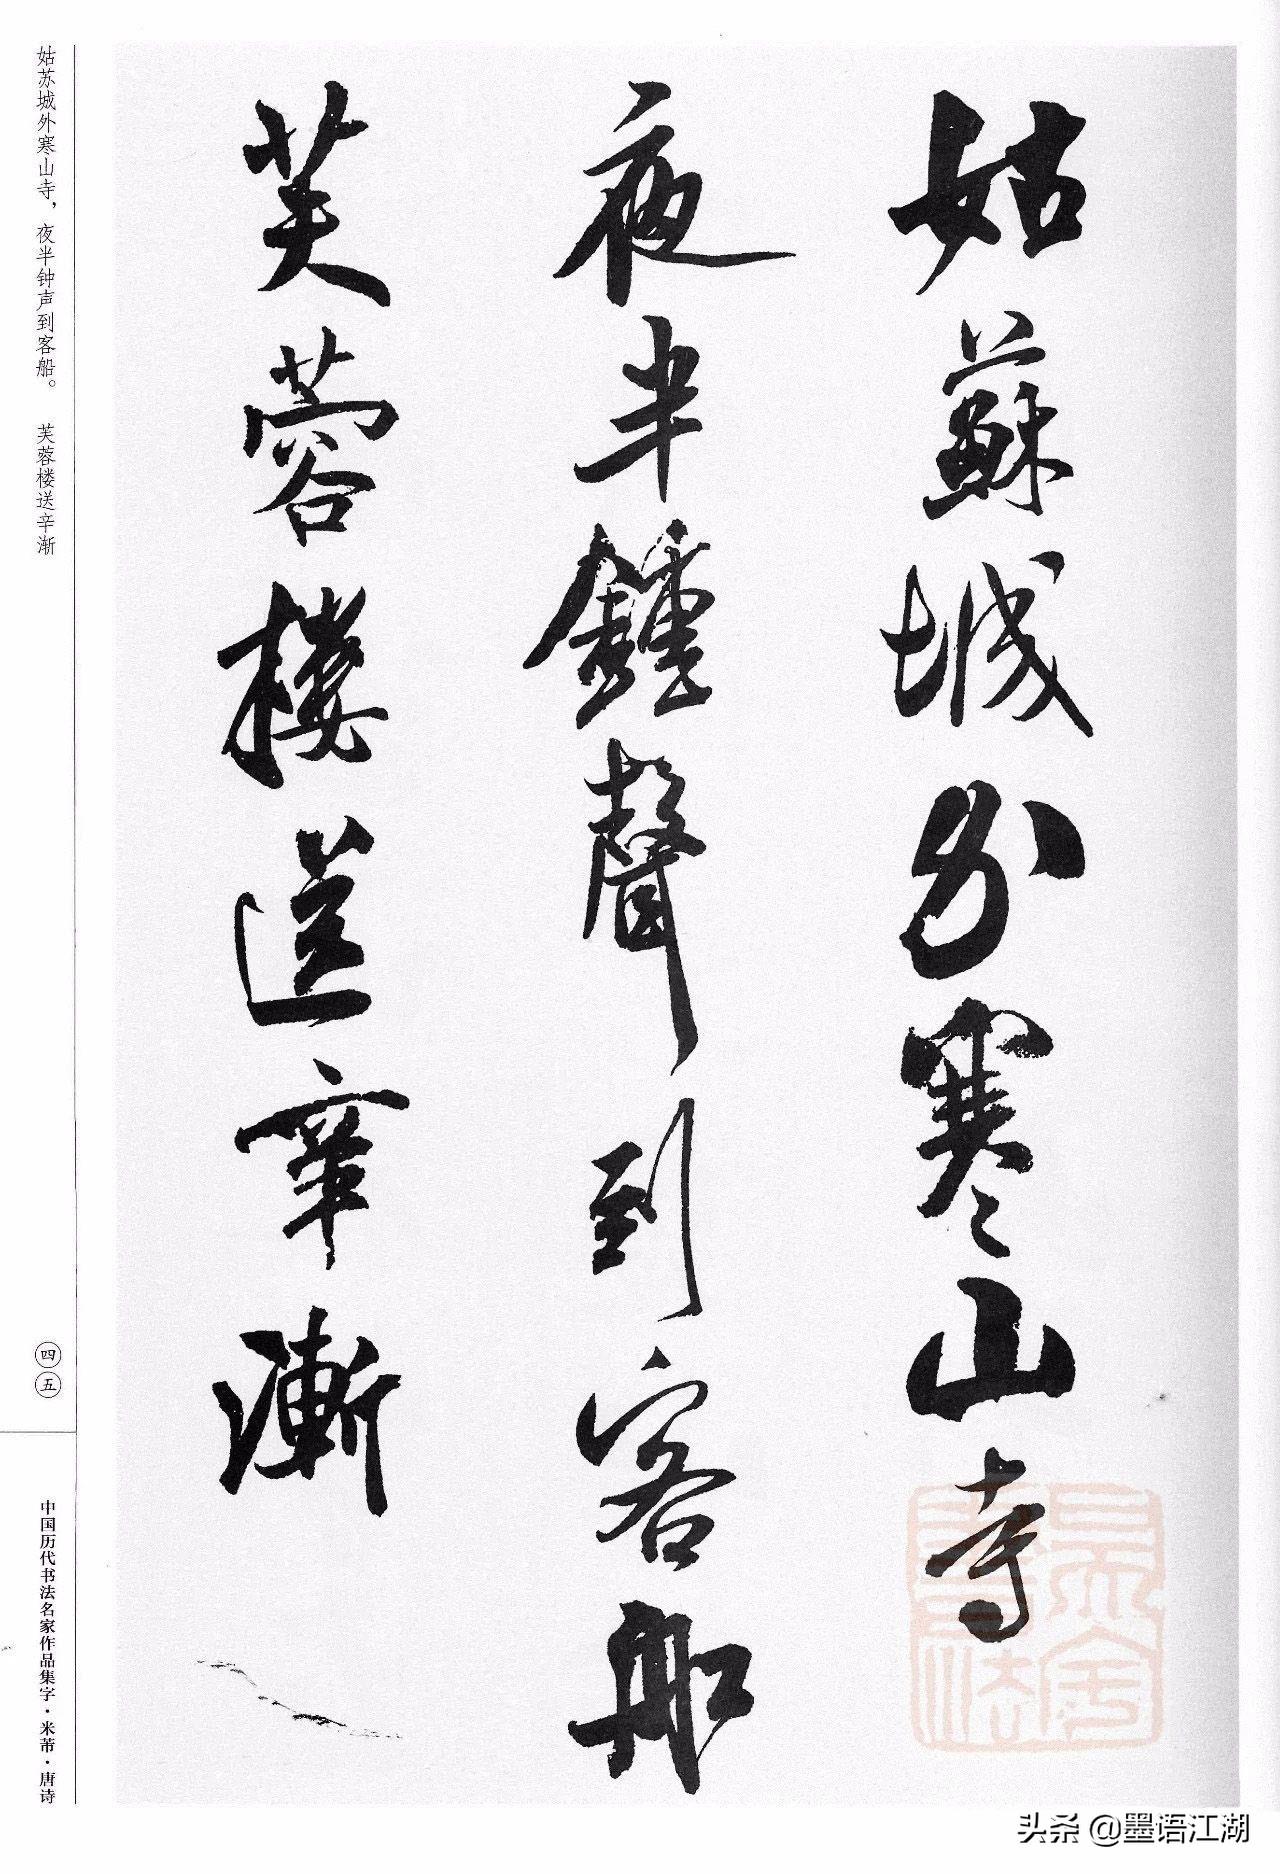 姑蘇城外寒山寺
夜半鍾聲到客船
芙蓉樓送辛漸
姑苏城外寒山寺，夜半钟声到客船。 芙蓉楼送辛渐
四五
中国历代书法名家作品集字·米芾·唐诗
头条 @墨语江湖